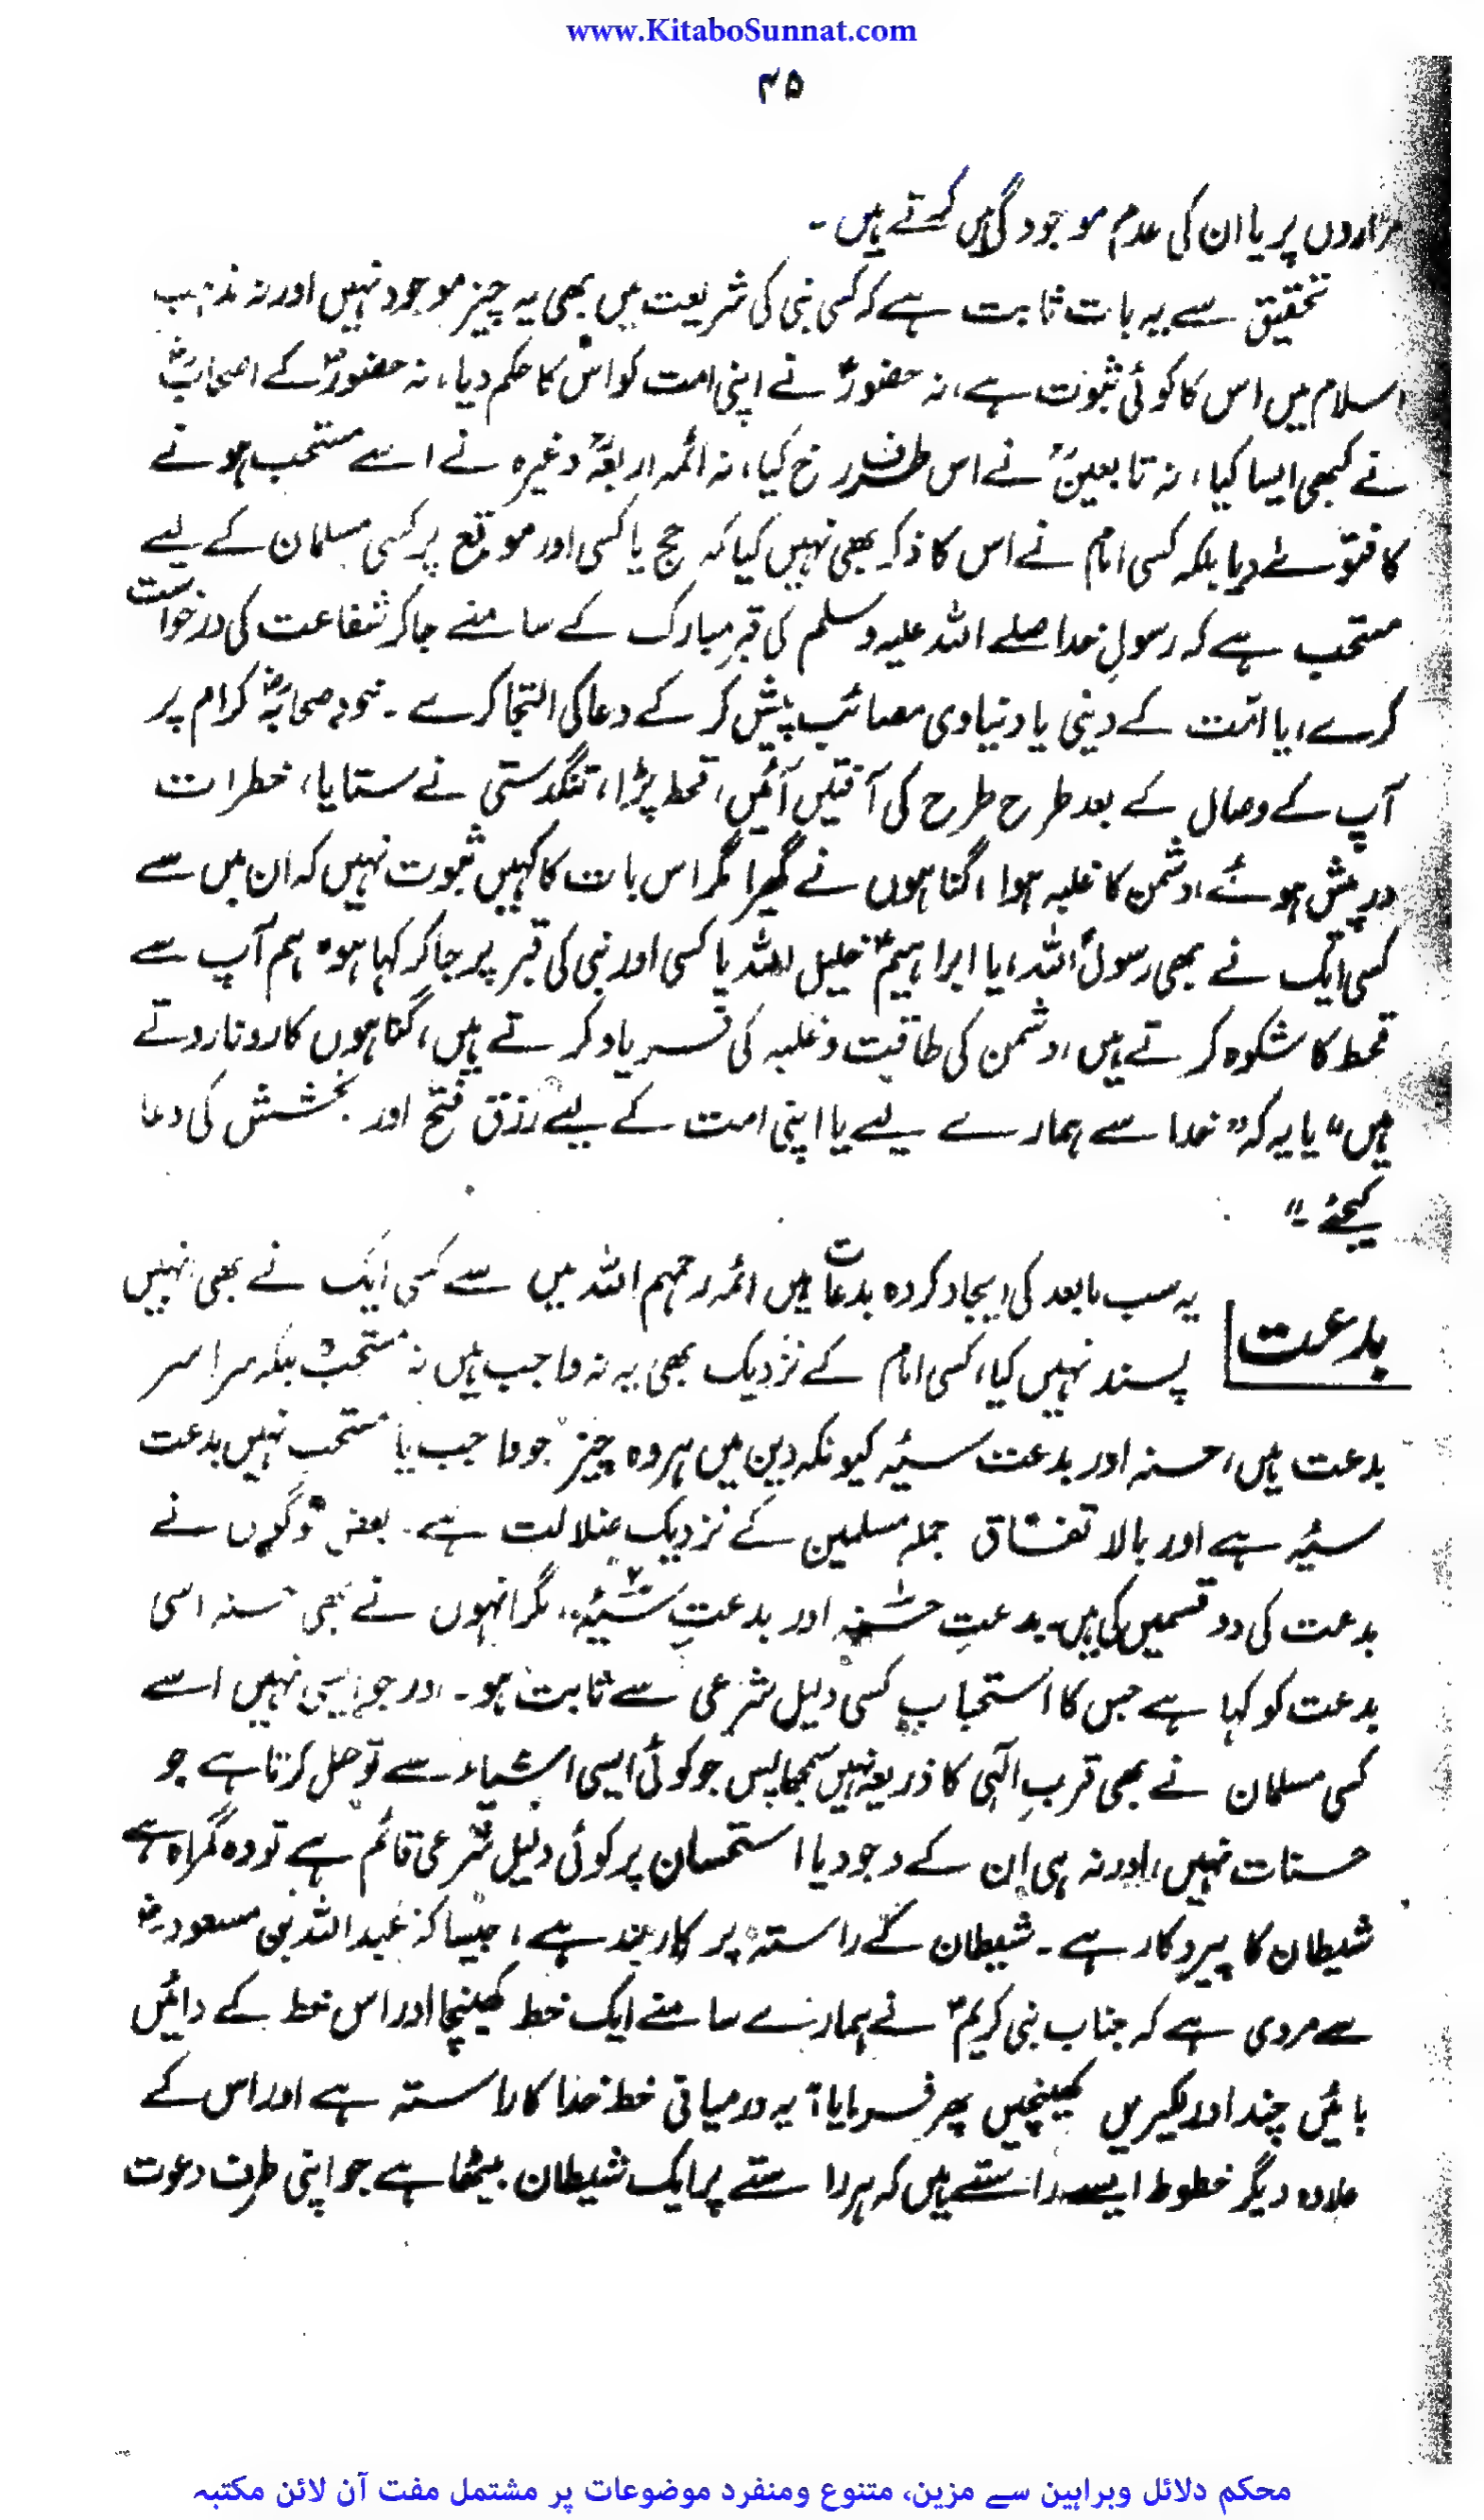 www.KitaboSunnat.com
۴۵
مزاروں پر یا ان کی عدم موجودگی میں کرتے ہیں۔
تحقیق سے یہ بات ثابت ہے کہ کسی نبی کی شریعت میں بھی یہ چیز موجود نہیں اور نہ مذہب
اسلام میں اس کا کوئی ثبوت ہے، نہ حضورؐ نے اپنی امت کو اس کا حکم دیا، نہ حضورؐ کے اصحابؓ
نے کبھی ایسا کیا، نہ تابعینؒ نے اس طرف رخ کیا، نہ ائمہ اربعہؒ وغیرہ نے اسے مستحب ہونے
کا فتوےٰ دیا بلکہ کسی امام نے اس کا ذکر بھی نہیں کیا کہ حج یا کسی اور موقع پر کسی مسلمان کے لیے
مستحب ہے کہ رسولِ خدا صلے اللہ علیہ وسلم کی قبر مبارک کے سامنے جا کر شفاعت کی درخواست
کرے، یا امّت کے دینی یا دنیاوی مصائب پیش کر کے دعا کی التجا کرے۔ خود صحابہؓ کرام پر
آپ کے وصال کے بعد طرح طرح کی آفتیں آئیں، قحط پڑا، تنگدستی نے ستایا، خطرات
درپیش ہوئے، دشمن کا غلبہ ہوا، گناہوں نے گھیرا مگر اس بات کا کہیں ثبوت نہیں کہ ان میں سے
کسی ایک نے بھی رسولؐ اللہ، یا ابراہیمؑ خلیل اللہ یا کسی اور نبی کی قبر پر جا کر کہا ہو" ہم آپ سے
قحط کا شکوہ کرتے ہیں، دشمن کی طاقت و غلبہ کی فریاد کرتے ہیں، گناہوں کا رونا روتے
ہیں" یا یہ کہ" خدا سے ہمارے لیے یا اپنی امت کے لیے رزق فتح اور بخشش کی دعا
کیجئے۔"
بدعت
یہ سب مابعد کی ایجاد کردہ بدعات ہیں ائمہ رحمہم اللہ میں سے کسی ایک نے بھی نہیں
پسند نہیں کیا، کسی امام کے نزدیک بھی یہ نہ واجب ہیں نہ مستحب بلکہ سراسر
بدعت ہیں، حسنہ اور بدعت سیئہ کیونکہ دین میں ہر وہ چیز جو واجب یا مستحب نہیں بدعت
سیئہ ہے اور بالاتفاق جملہ مسلمین کے نزدیک ضلالت ہے۔ بعض لوگوں نے
بدعت کی دو قسمیں کی ہیں۔ بدعتِ حسنہ اور بدعتِ سیّئہ، مگر انہوں نے بھی حسنہ اسی
بدعت کو کہا ہے جس کا استحباب کسی دلیل شرعی سے ثابت ہو۔ اور جو ایسی نہیں اسے
کسی مسلمان نے بھی قربِ الٰہی کا ذریعہ نہیں سمجھا پس جو کوئی ایسی اشیاء سے توصل کرتا ہے جو
حسنات نہیں، اور نہ ہی ان کے وجود یا استحسان پر کوئی دلیل شرعی قائم ہے تو وہ گمراہ ہے
شیطان کا پیروکار ہے۔ شیطان کے راستہ پر کاربند ہے، جیسا کہ عبداللہ بن مسعودؓ
سے مروی ہے کہ جناب نبی کریمؐ نے ہمارے سامنے ایک خط کھینچا اور اس خط کے دائیں
بائیں چند اور لکیریں کھینچیں پھر فرمایا: یہ درمیانی خط خدا کا راستہ ہے اور اس کے
علاوہ دیگر خطوط ایسے راستے ہیں کہ ہر راستے پر ایک شیطان بیٹھا ہے جو اپنی طرف دعوت
محکم دلائل وبراہین سے مزین، متنوع ومنفرد موضوعات پر مشتمل مفت آن لائن مکتبہ